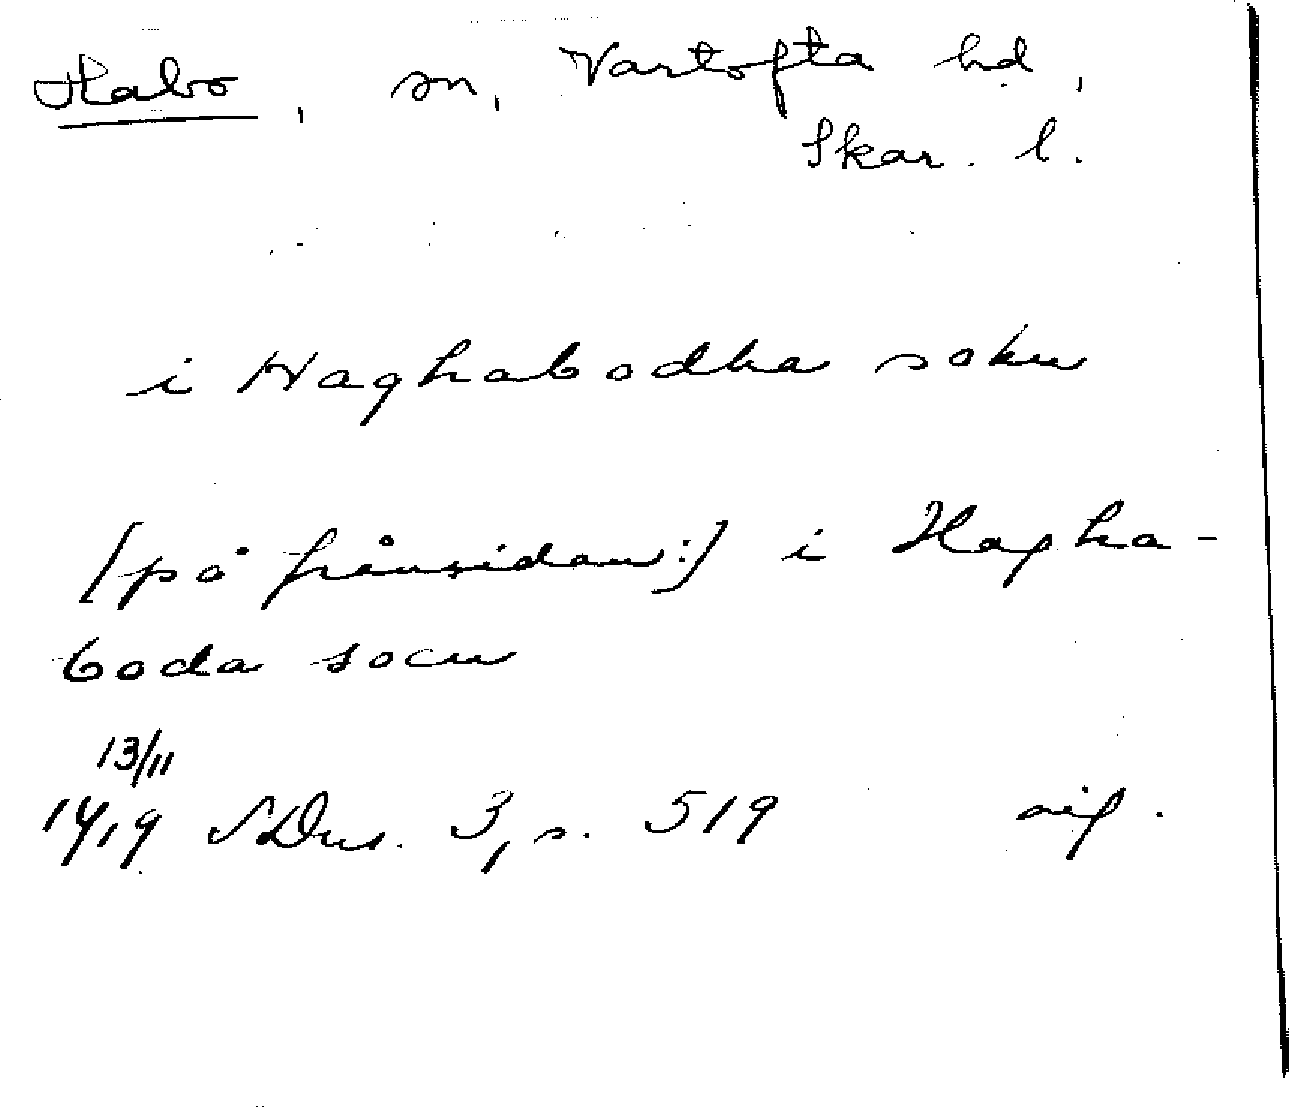 Habo, sn, Vartofta hd,
Skar. l.
i Haghabodha sokn
[på frånsidan:] i Hagha-
boda socn
13/11
1419 SDns. 3, s. 519 oif.